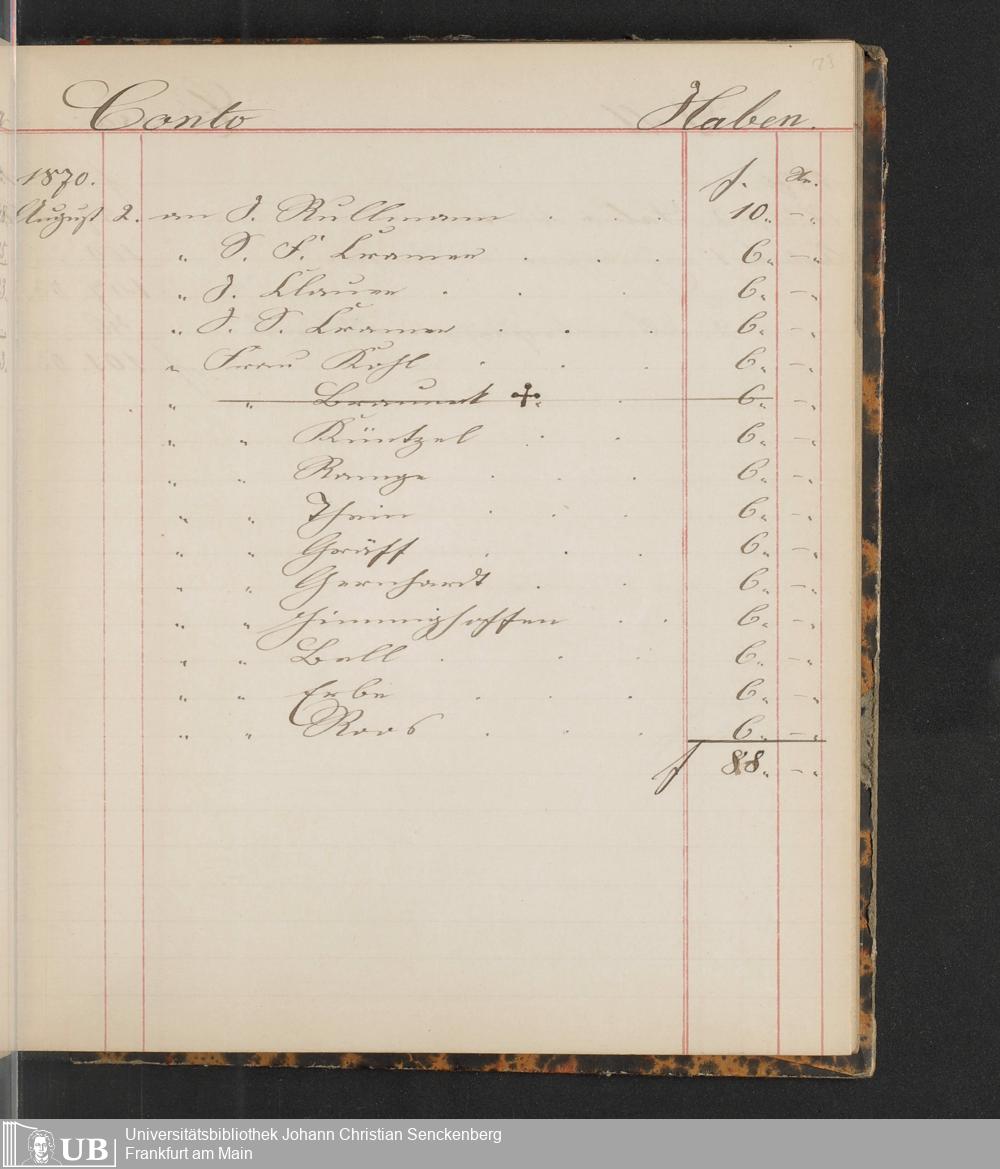 23
Conto Haben.
1870. f. Xr.
August 2. an J. Rullmann . . . 10. -.
" S. F. Cramer . . . 6. -.
" J. Clauer . . . 6. -.
" J. S. Cramer . . . 6. -.
" Frau Kohl . . . 6. -.
" " Braunek ✢. . 6. -.
" " Küntzel . . 6. -.
" " Range . . . 6. -.
" " Thein . . . 6. -.
" " Gräff . . . 6. -.
" " Gernhardt . . 6. -.
" " Himmighoffen . . 6. -.
" " Bell . . . 6. -.
" " Erbe . . . 6. -.
" " Roos . . . 6. -.
f 88. -.
UB Universitätsbibliothek Johann Christian Senckenberg
Frankfurt am Main